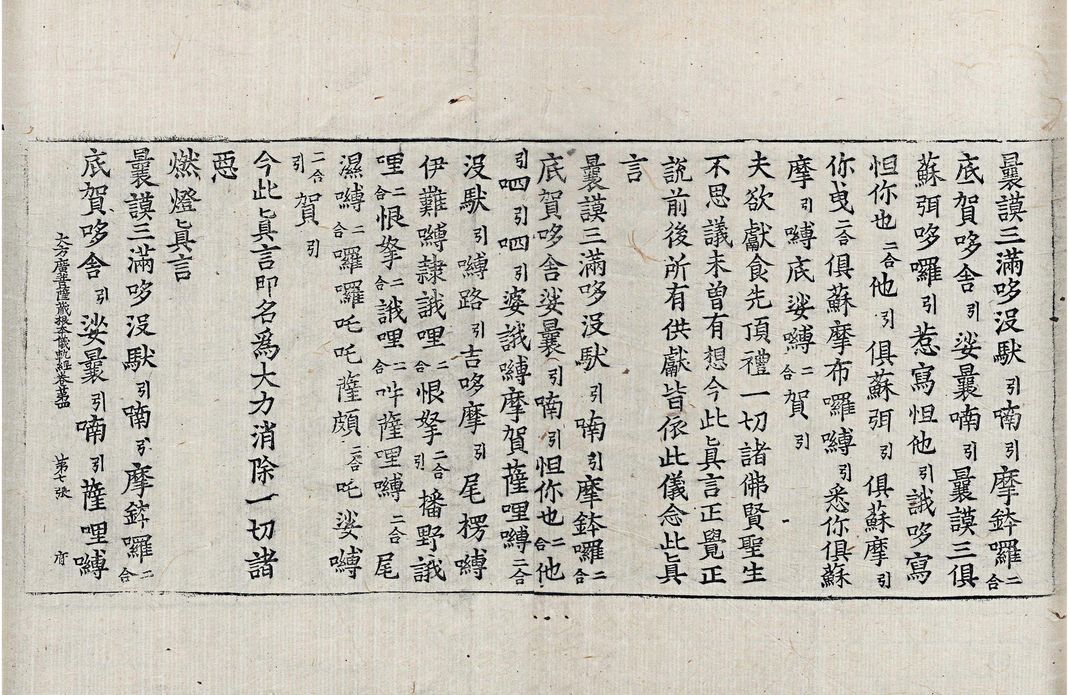 曩謨三滿哆没馱引喃引摩鉢囉二合
底賀哆舍引娑曩喃引曩謨三俱
蘇弭哆囉引惹寫怛他引誐哆寫
怛你也二合他引俱蘇弭引俱蘇摩引
你曳二合俱蘇摩布囉嚩引悉你俱蘇
摩引嚩底娑嚩二合賀引
夫欲獻食先頂禮一切諸佛賢聖生
不思議未曾有想今此眞言正覺正
說前後所有供獻皆依此儀念此眞
言
曩謨三滿哆没馱引喃引摩鉢囉二合
底賀哆舍娑曩引喃引怛你也二合他
引呬引呬引婆誐嚩摩賀薩哩嚩二合
没馱引嚩路引吉哆摩引尾楞嚩
伊難嚩隷誐哩二合恨拏二合引播野誐
哩二合恨拏二合誐哩二合吽薩哩嚩二合尾
濕嚩二合囉囉吒吒薩頗二合吒娑嚩
二合引賀引
今此眞言即名爲大力消除一切諸
惡
燃燈眞言
曩謨三滿哆没馱引喃引摩鉢囉二合
底賀哆舍引娑曩引喃引薩哩嚩
大方廣菩薩藏根本儀軌經卷第四 第七張 府